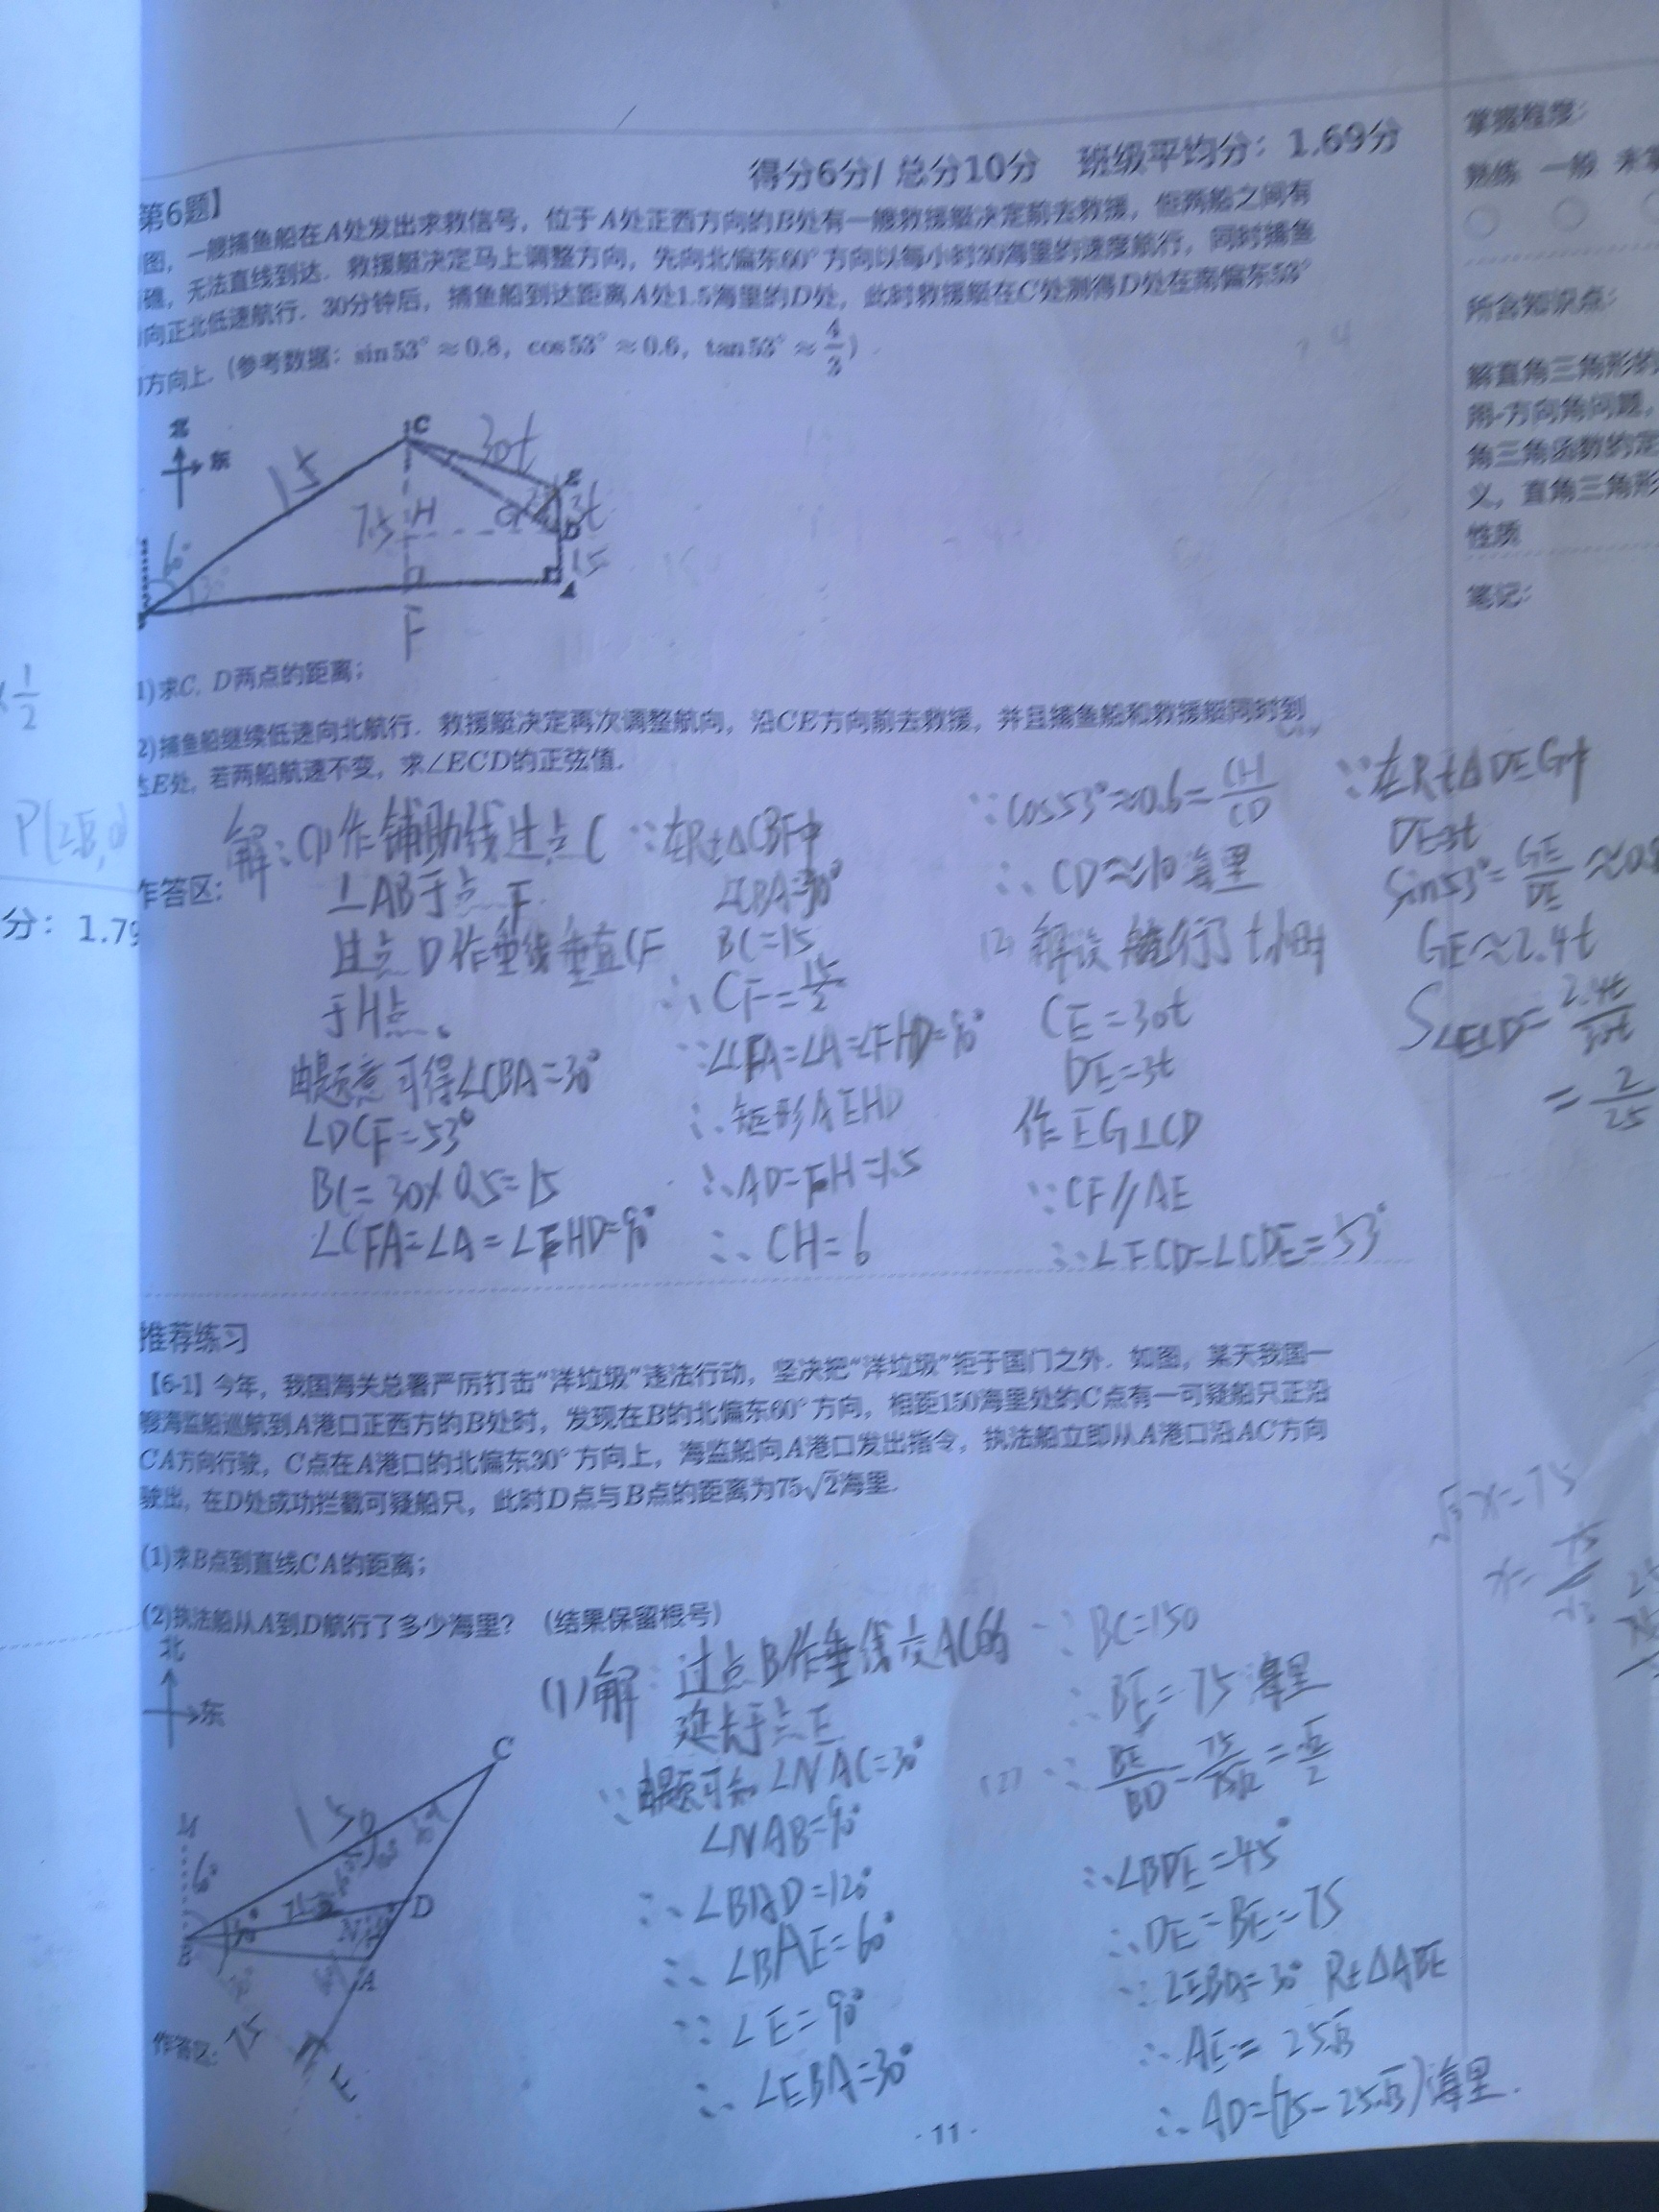 得分6分/ 总分10分 班级平均分：1.69分
第6题】
图，一艘捕鱼船在A处发出求救信号，位于A处正西方向的B处有一艘救援艇决定前去救援，但两船之间有
礁，无法直线到达．救援艇决定马上调整方向，先向北偏东60°方向以每小时30海里的速度航行，同时捕鱼
向正北低速航行．30分钟后，捕鱼船到达距离A处1.5海里的D处，此时救援艇在C处测得D处在南偏东53°
方向上．(参考数据：sin53°≈0.8，cos53°≈0.6，tan53°≈4/3)
北
东
C
15
30t
E
7.5
H
G
3t
D
1.5
60°
30°
A
F
1)求C，D两点的距离；
2)捕鱼船继续低速向北航行．救援艇决定再次调整航向，沿CE方向前去救援，并且捕鱼船和救援艇同时到
达E处，若两船航速不变，求∠ECD的正弦值．
作答区：
解：(1)作辅助线过点C
⊥AB于点F
过点D作垂线垂直CF
于H点。
由题意可得∠CBA=30°
∠DCF=53°
BC=30×0.5=15
∠CFA=∠A=∠FHD=90°
∵在Rt△CBF中
∠CBA=30°
BC=15
∴CF=15/2
∵∠CFA=∠A=∠FHD=90°
∴矩形AFHD
∴AD=FH=1.5
∴CH=6
∵cos53°≈0.6=CH/CD
∴CD≈10海里
(2)解设航行了t小时
CE=30t
DE=3t
作EG⊥CD
∵CF∥AE
∴∠FCD=∠CDE=53°
∵在Rt△DEG中
DE=3t
sin53°=GE/DE≈0.8
GE≈2.4t
S∠ECD=2.4t/30t
=2/25
推荐练习
【6-1】今年，我国海关总署严厉打击“洋垃圾”违法行动，坚决把“洋垃圾”拒于国门之外．如图，某天我国一
艘海监船巡航到A港口正西方的B处时，发现在B的北偏东60°方向，相距150海里处的C点有一可疑船只正沿
CA方向行驶，C点在A港口的北偏东30°方向上，海监船向A港口发出指令，执法船立即从A港口沿AC方向
驶出，在D处成功拦截可疑船只，此时D点与B点的距离为75√2海里．
(1)求B点到直线CA的距离；
(2)执法船从A到D航行了多少海里？（结果保留根号）
北
东
C
150
M
60°
D
N
B
A
75
E
作答区：
(1)解：过点B作垂线交AC的
延长于点E
∵由题可知∠NAC=30°
∠NAB=90°
∴∠BAD=120°
∴∠BAE=60°
∵∠E=90°
∴∠EBA=30°
∵BC=150
∴BE=75海里
(2)∵BE/BD=75/75√2=√2/2
∴∠BDE=45°
∴DE=BE=75
∵∠EBA=30° Rt△ABE
∴AE=25√3
∴AD=(75-25√3)海里.
·11·
掌握程度：
熟练 一般 未掌
所含知识点：
解直角三角形的
用-方向角问题，
角三角函数的定
义，直角三角形
性质
笔记：
√3x=75
分：1.79